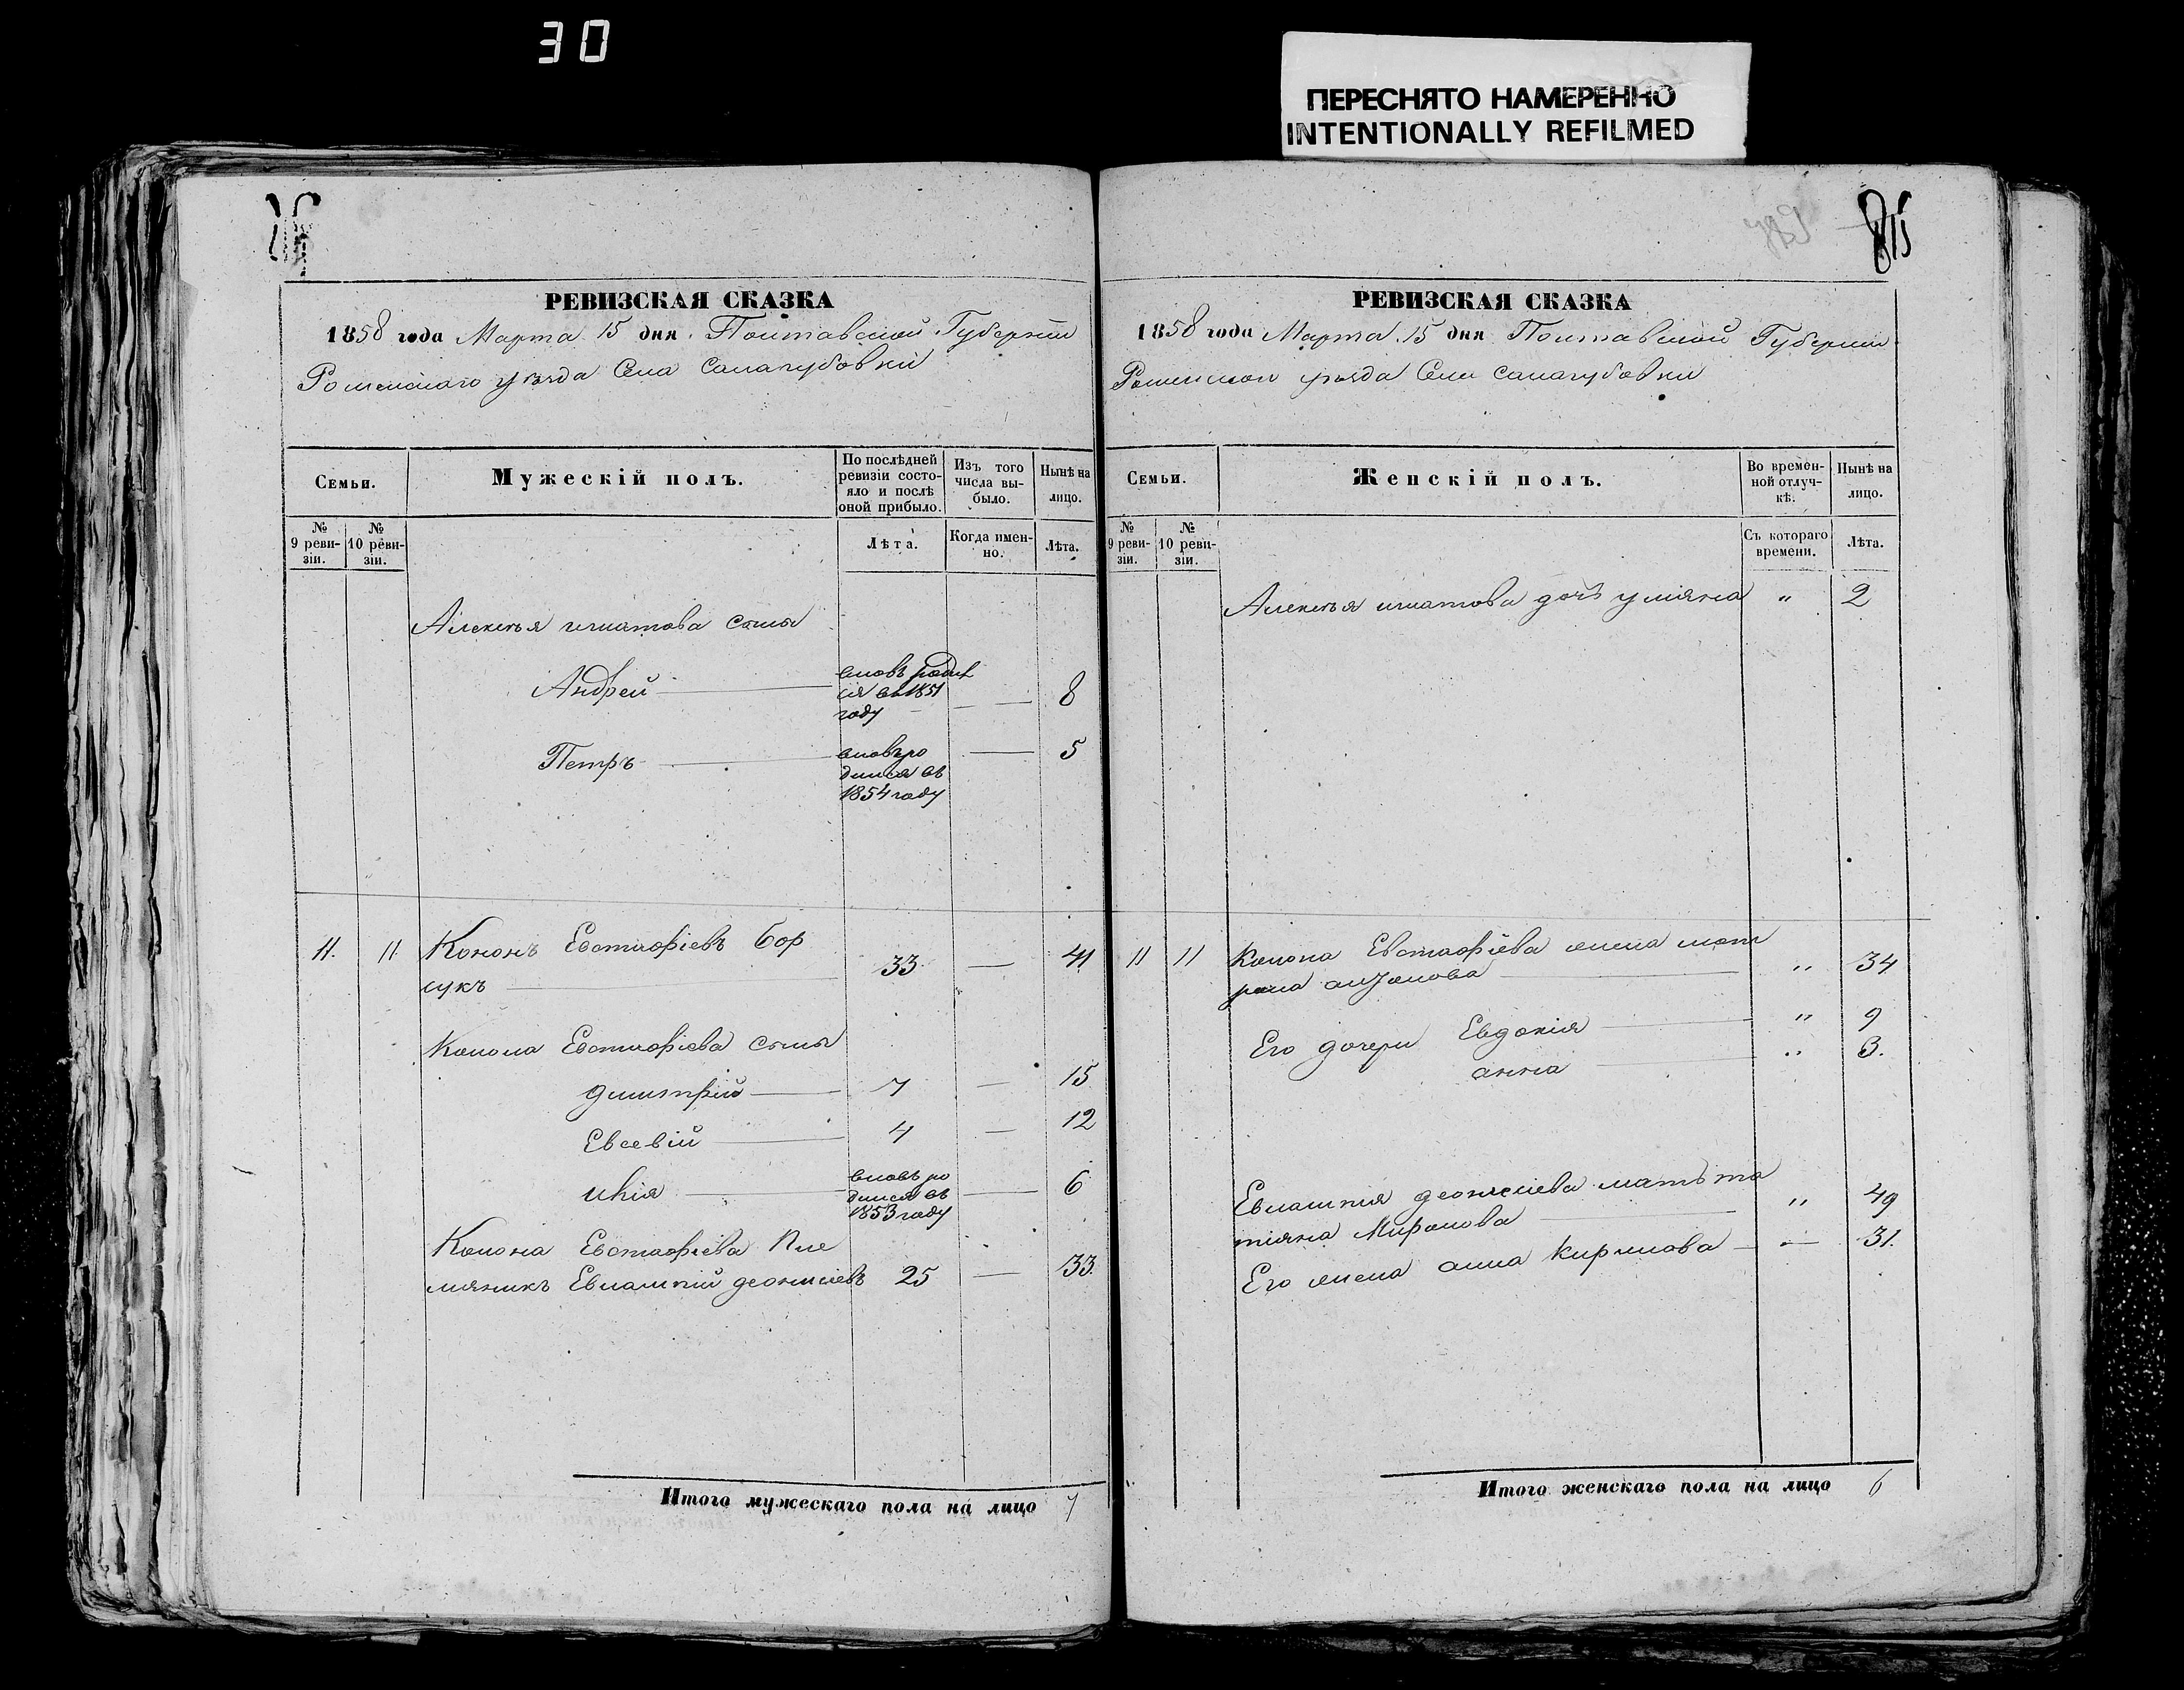 30
ПЕРЕСНЯТО НАМЕРЕННО
INTENTIONALLY REFILMED
815
РЕВИЗСКАЯ СКАЗКА
1858 года Марта 15 дня. Полтавской Губерніи
Роменскаго уѣзда Села Салагубовки
Семьи.
Мужескій полъ.
По послѣдней ревизіи состояло и послѣ оной прибыло.
Изъ того числа выбыло.
Нынѣ на лицо.
№ 9 ревизіи.
№ 10 ревизіи.
Лѣта.
Когда именно.
Лѣта.
Алексѣя игнатова сыны
Андрей вновь родил
ся въ 1851
году 8
Петръ вновь ро
дился въ
1854 году 5
11. 11. Кононъ Евстафіевъ Бор
сукъ 33 — 41
Конона Евстафіева сыны
Дмитрій 7 — 15
Евсевій 4 — 12
вновь ро
дился въ
1853 году — 6
Конона Евстафіева Пле
мяникъ Евлампій деонисіевъ 25 — 33.
Итого мужескаго пола на лицо 7
РЕВИЗСКАЯ СКАЗКА
1858 года Марта 15 дня Полтавской Губерніи
Роменскаго уѣзда Села Салагубовки
Семьи.
Женскій полъ.
Во временной отлучкѣ.
Нынѣ на лицо.
№ 9 ревизіи.
№ 10 ревизіи.
Съ котораго времени.
Лѣта.
Алексѣя игнатова дочь уліяна " 2
11 11 Конона Евстафіева жена мот
рона " 34
Его дочери Евдокія " 9
анна " 3.
Евлампія деонисіева мать та
тіяна Миронова " 49
Его жена анна Кирилова — 31.
Итого женскаго пола на лицо 6